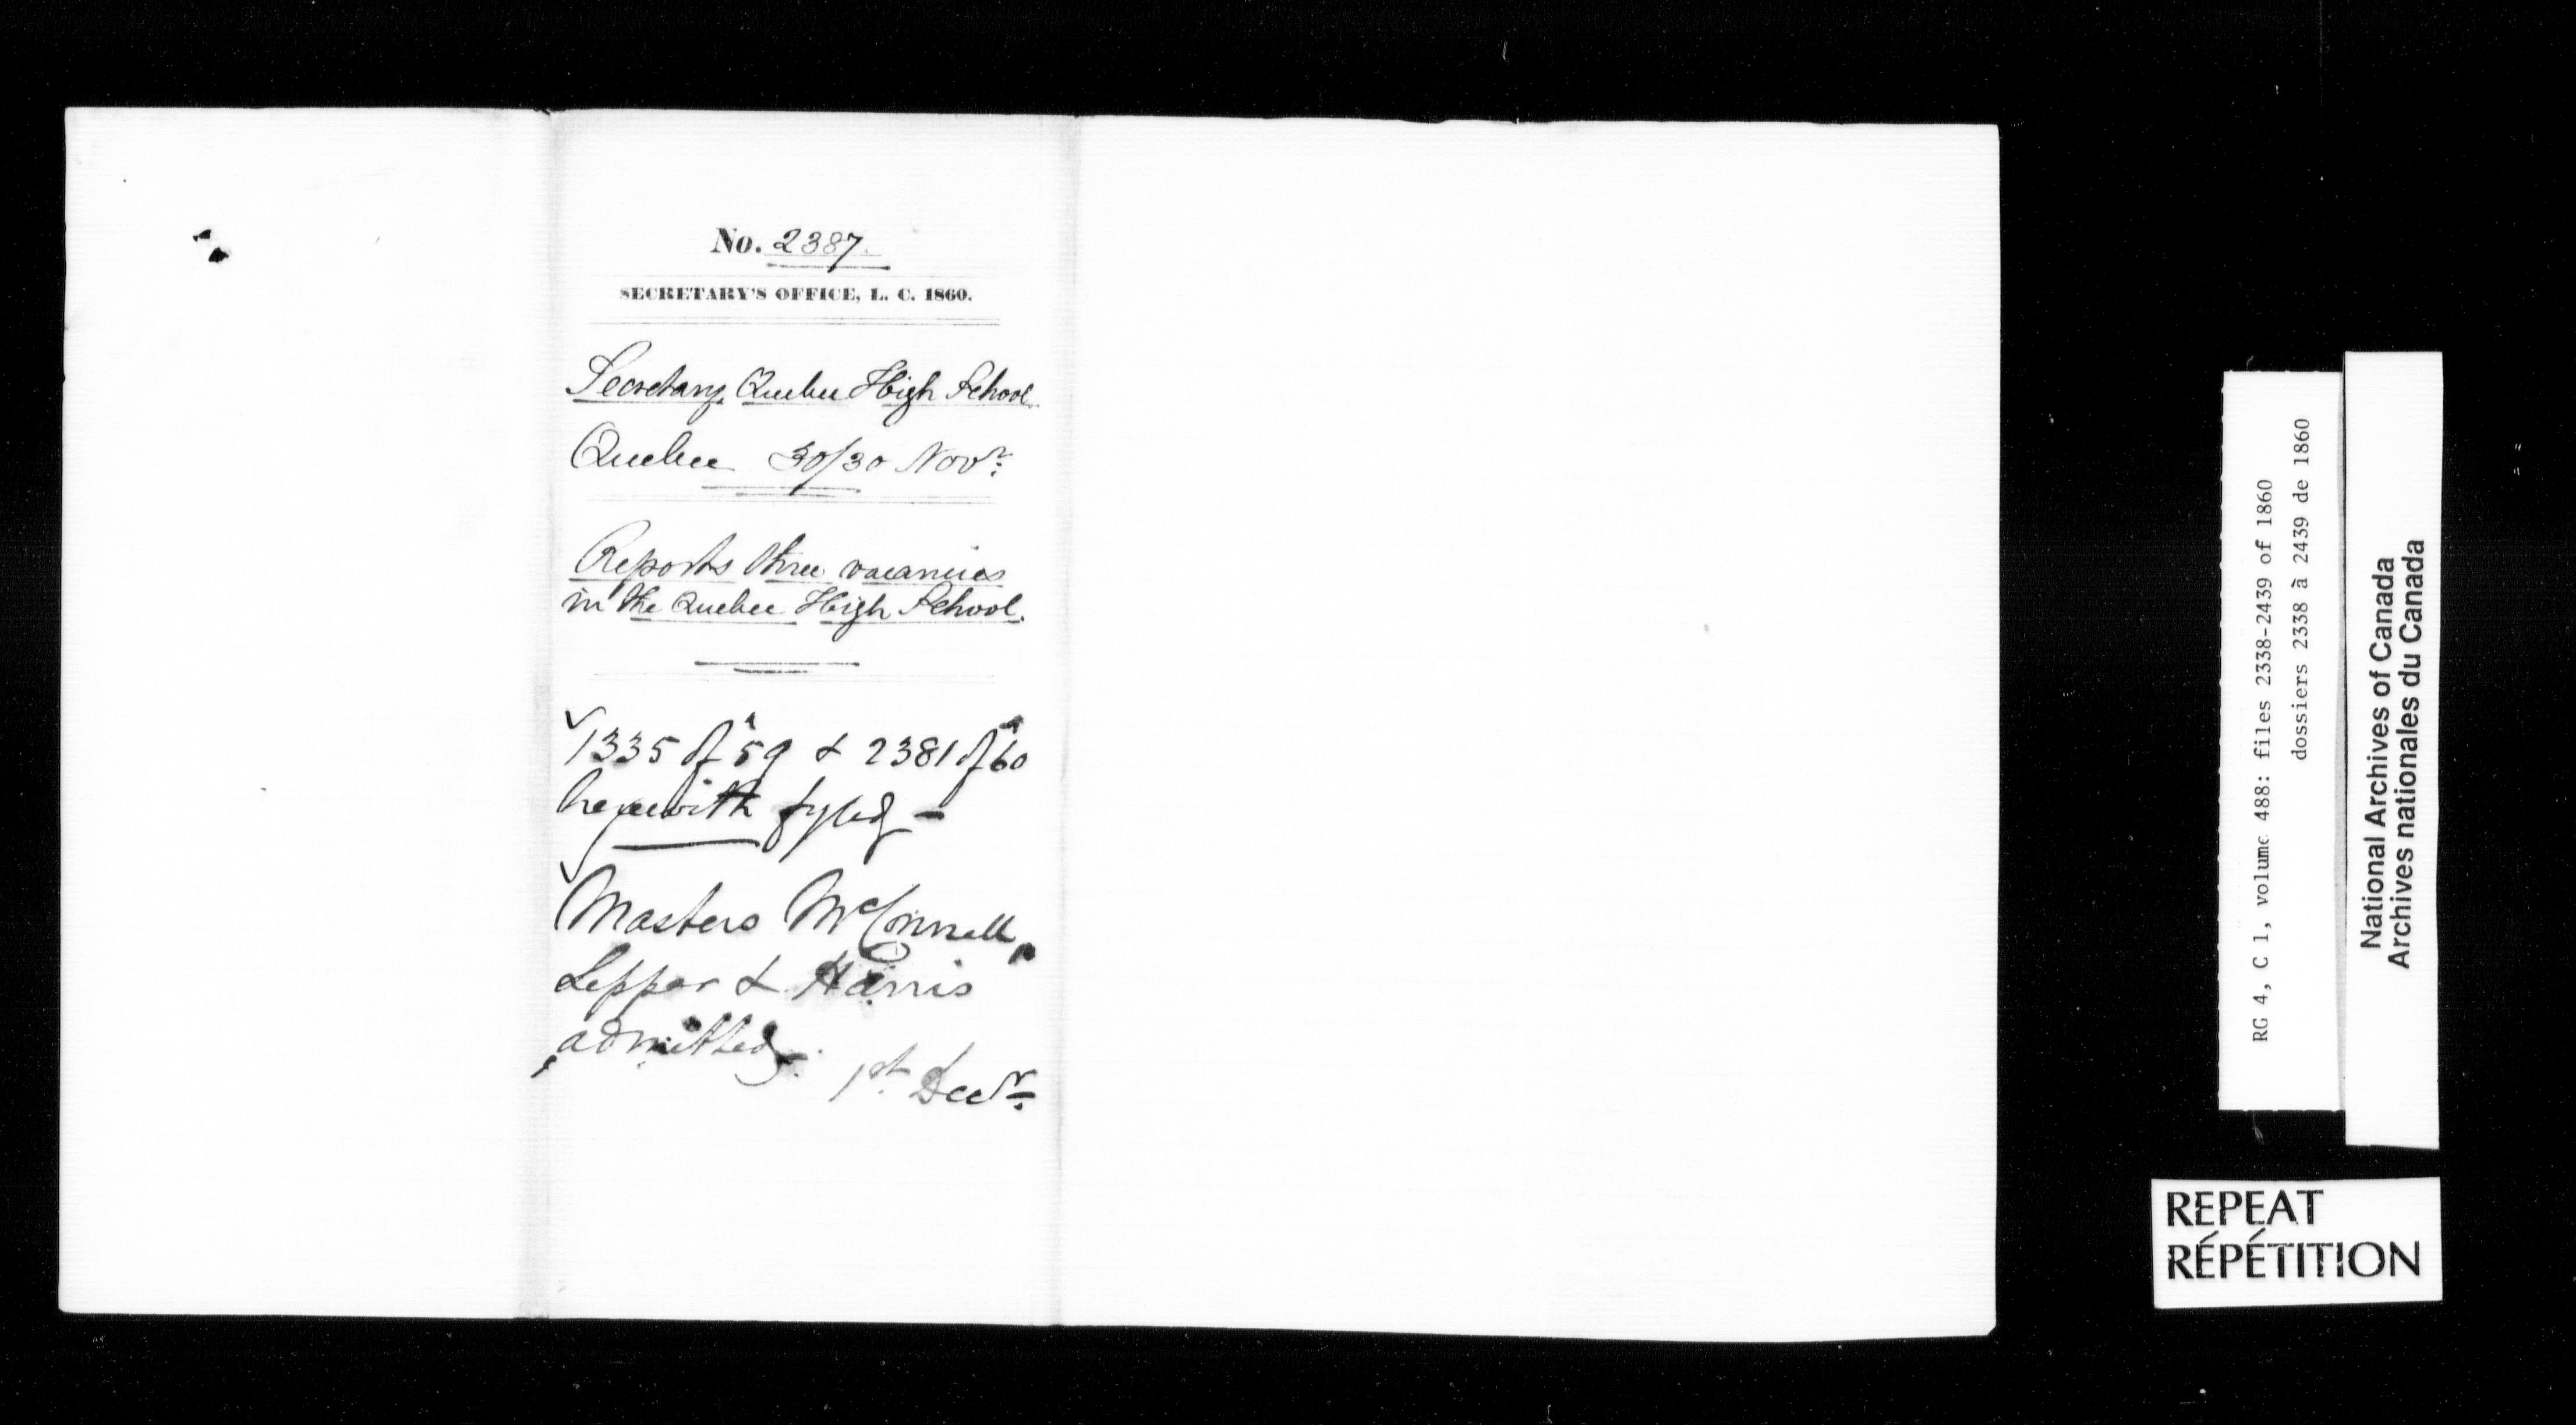 No. 2387.
SECRETARY'S OFFICE, L. C. 1860.
Secretary, Quebec High School
Quebec 30/30 Novr:
Reports three vacancies
in the Quebec High School.
1335 of '59 & 2381 of '60
herewith fyled –
Masters McConnell,
Lepper & Harris
admitted –
1st. Decr:
RG 4, C 1, volume 488: files 2338-2439 of 1860
dossiers 2338 à 2439 de 1860
National Archives of Canada
Archives nationales du Canada
REPEAT
RÉPÉTITION